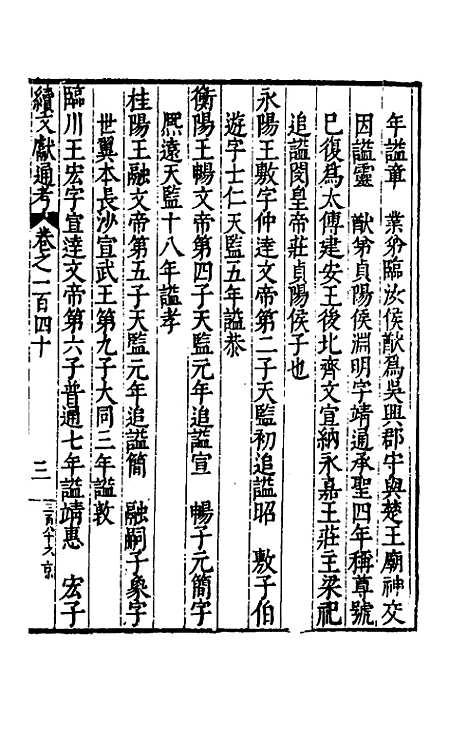 年謚章　業弟臨汝侯猷爲吳興郡守與楚王廟神交
因謚靈　猷弟貞陽侯淵明字靖通承聖四年稱尊號
已復爲太傅建安王後北齊文宣納永嘉王莊主梁祀
追謚閔皇帝莊貞陽侯子也
永陽王敷字仲達文帝第二子天監初追謚昭　敷子伯
遊字士仁天監五年謚恭
衡陽王暢文帝第四子天監元年追謚宣　暢子元簡字
熈遠天監十八年謚孝
桂陽王融文帝第五子天監元年追謚簡　融嗣子象字
世翼本長沙宣武王第九子大同三年謚敦
臨川王宏字宣達文帝第六子普通七年謚靖惠　宏子
續文獻通考　卷之一百四十　三